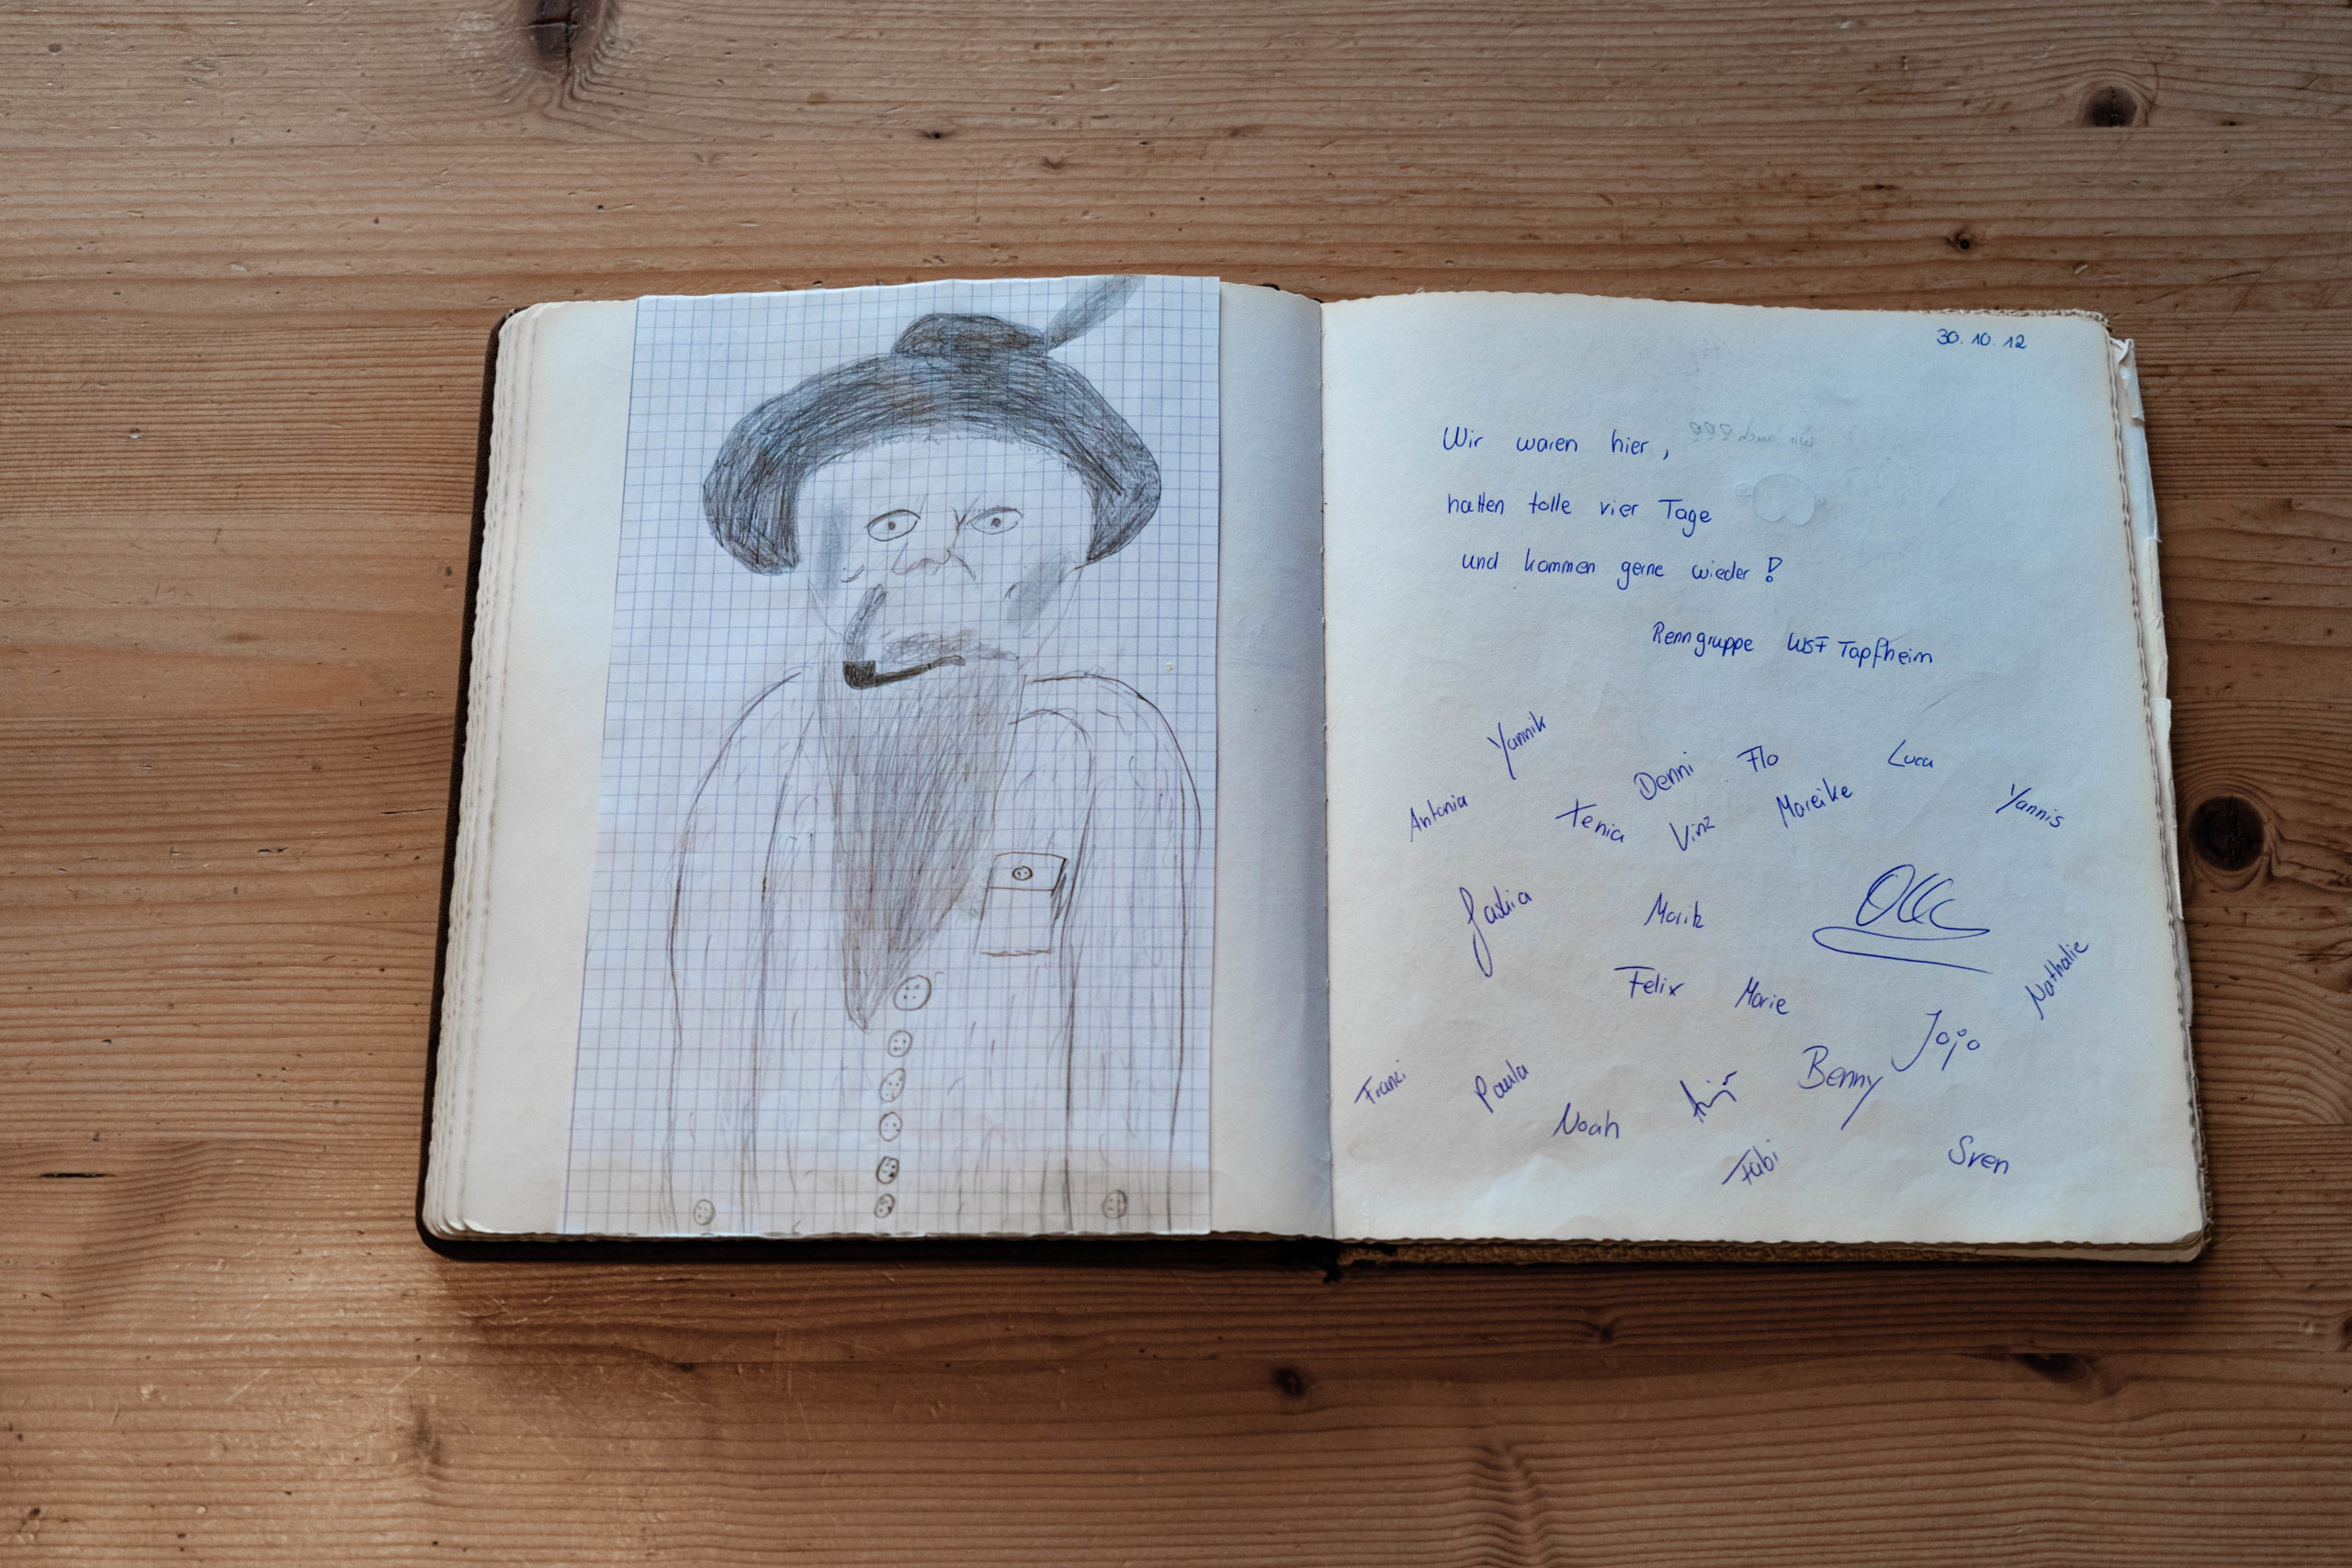 30.10.12
Wir waren hier,
hatten tolle vier Tage
und kommen gerne wieder!
Renngruppe WSF Tapfheim
Yannik
Denni Flo Luca
Antonia Xenia Vinz Mareike Yannis
Moritz
Nathalie
Felix Marie
Jojo
Franzi Paula Benny
Noah
Fabi Sven